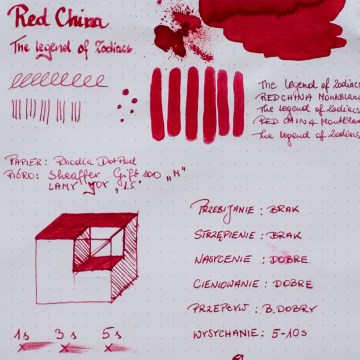 Red China
The legend of Zodiacs
The legend of Zodiacs
RED CHINA MontBlanc
The legend of Zodiacs
RED CHINA MontBlanc
The legend of Zodiacs
PAPIER: Rhodia DotPad
PIÓRO: Sheaffer Gift 100 „M"
LAMY Joy „1.5"
PRZEBIJANIE: BRAK
STRZĘPIENIE: BRAK
NASYCENIE: DOBRE
CIENIOWANIE: DOBRE
PRZEPŁYW: B.DOBRY
WYSYCHANIE: 5-10s
1s 3s 5s